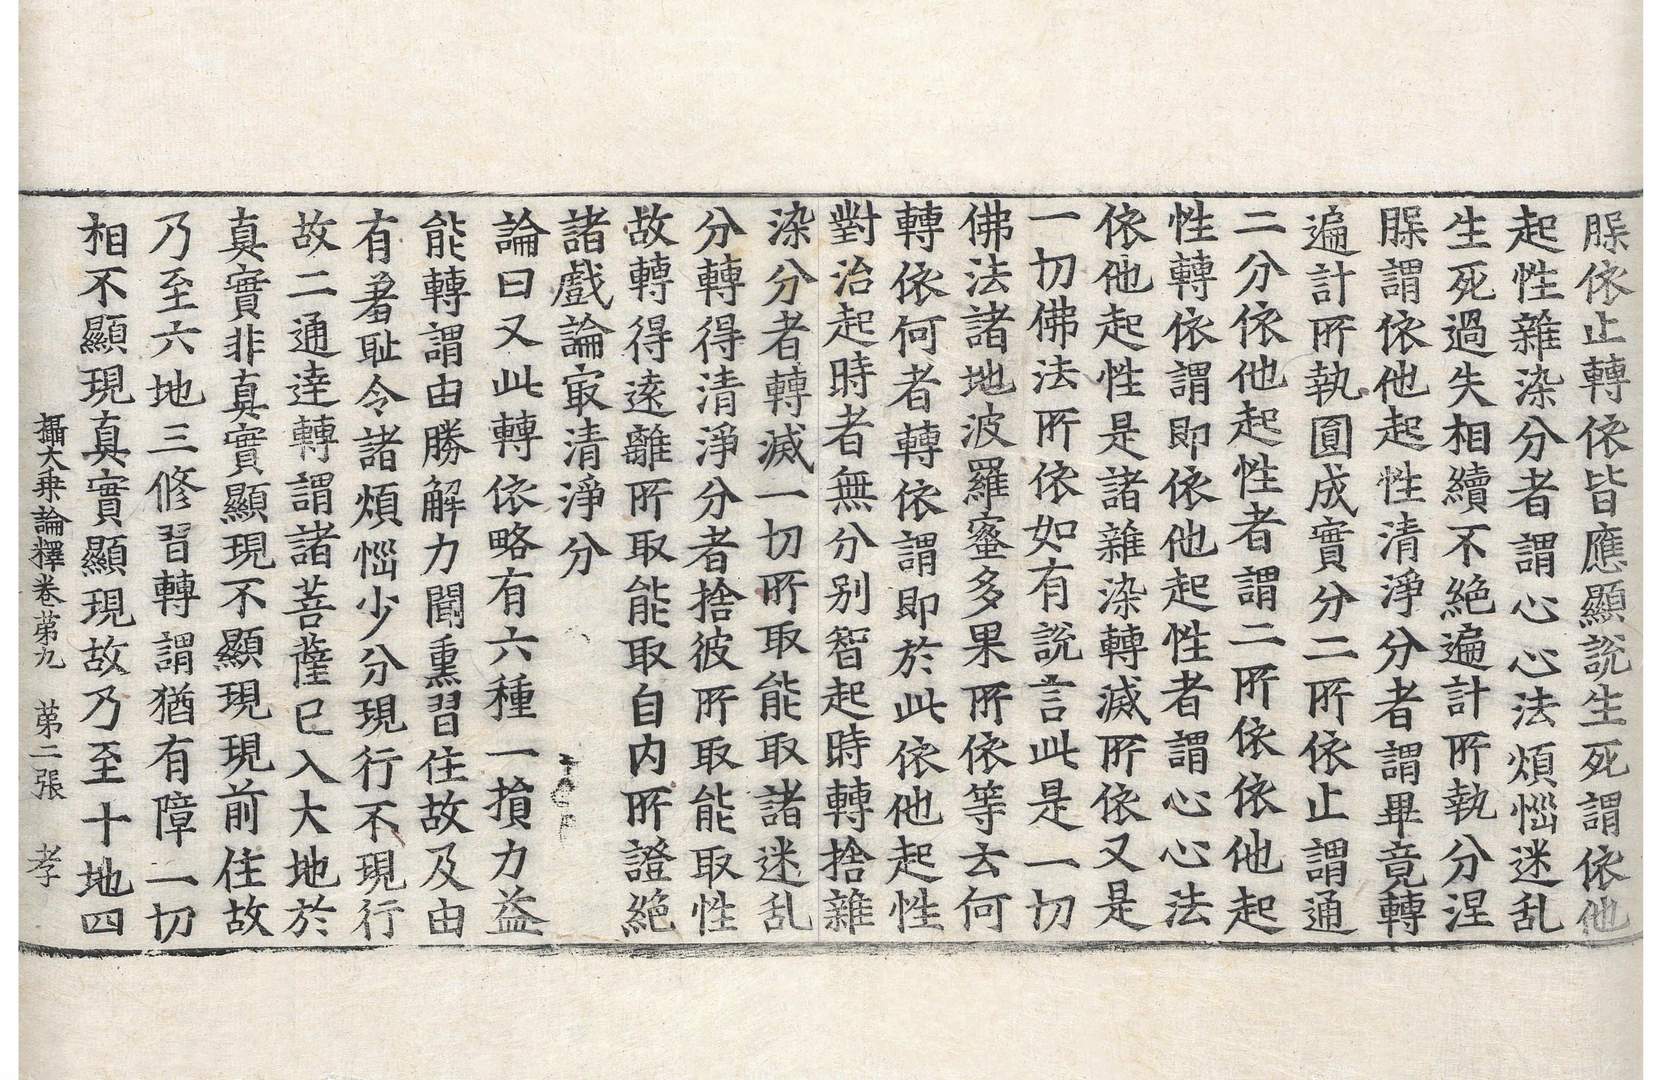 脲依止轉依皆應顯說生死謂依他
起性雜染分者謂心心法煩惱迷乱
生死過失相續不絕遍計所執分涅
脲謂依他起性清淨分者謂畢竟轉
遍計所執圓成實分二所依止謂通
二分依他起性者謂二所依依他起
性轉依謂即依他起性者謂心心法
依他起性是諸雜染轉滅所依又是
一切佛法所依如有說言此是一切
佛法諸地波羅蜜多果所依等去何
轉依何者轉依謂即於此依他起性
對治起時者無分別智起時轉捨雜
染分者轉滅一切所取能取諸迷乱
分轉得清淨分者捨彼所取能取性
故轉得遠離所取能取自內所證絕
諸戲論㝡清淨分
論曰又此轉依略有六種一損力益
能轉謂由勝解力聞熏習住故及由
有羞耻令諸煩惱少分現行不現行
故二通達轉謂諸菩薩已入大地於
真實非真實顯現不顯現現前住故
乃至六地三修習轉謂猶有障一切
相不顯現真實顯現故乃至十地四
攝大乗論釋卷第九　第二張　孝